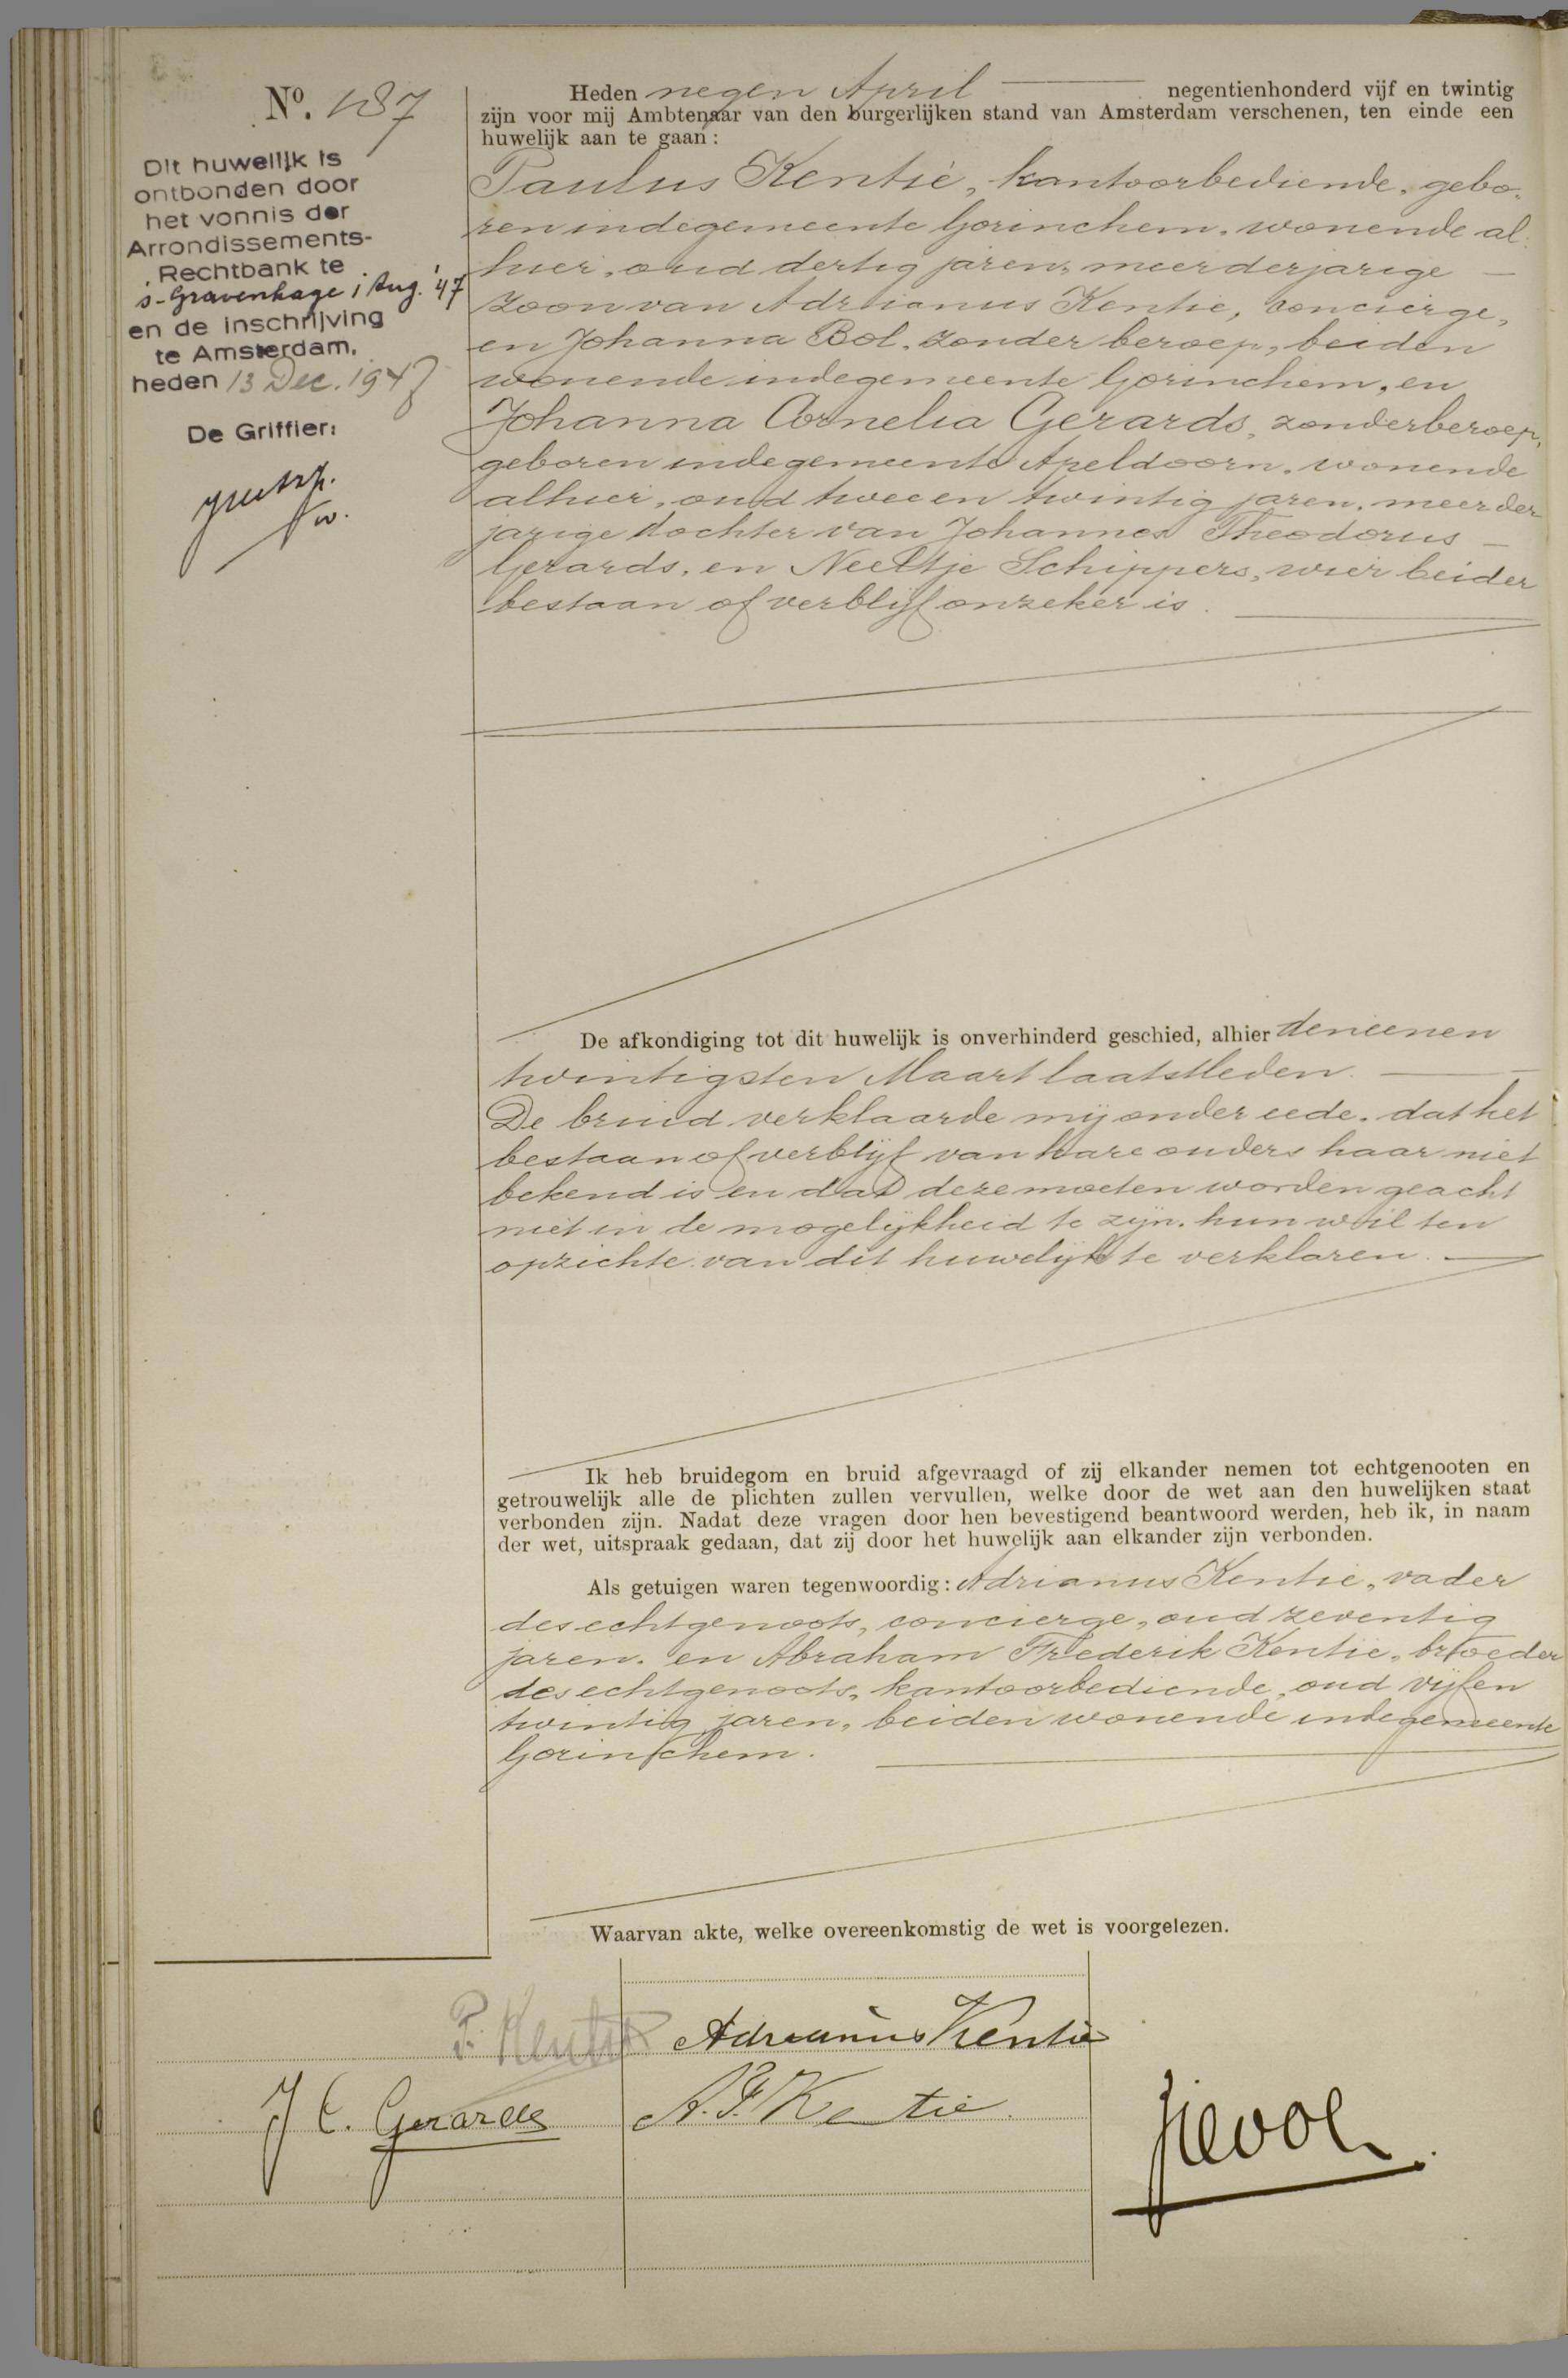 Nº. 187
Dit huwelijk is
ontbonden door
het vonnis der
Arrondissements-
Rechtbank te
s-Gravenhage 1 Aug. '47
en de inschrijving
te Amsterdam,
heden 13 Dec. 1947
De Griffier:
Heden negen April negentienhonderd vijf en twintig
zijn voor mij Ambtenaar van den burgerlijken stand van Amsterdam verschenen, ten einde een
huwelijk aan te gaan:
Paulus Kentie, kantoorbediende, gebo-
ren in de gemeente Gorinchem, wonende al-
hier, oud dertig jaren, meerderjarige
zoon van Adrianus Kentie, concierge,
en Johanna Bol, zonder beroep, beiden
wonende in de gemeente Gorinchem, en
Johanna Cornelia Gerards, zonder beroep,
geboren in de gemeente Apeldoorn, wonende
alhier, oud twee en twintig jaren, meerder-
jarige dochter van Johannes Theodorus
Gerards, en Neeltje Schippers, wier beider
bestaan of verblijf onzeker is.
De afkondiging tot dit huwelijk is onverhinderd geschied, alhier den eenen
twintigsten Maart laatstleden.
De bruid verklaarde mij onder eede, dat het
bestaan of verblijf van hare ouders haar niet
bekend is en dat deze moeten worden geacht
niet in de mogelijkheid te zijn, hun wil ten
opzichte van dit huwelijk te verklaren.
Ik heb bruidegom en bruid afgevraagd of zij elkander nemen tot echtgenooten en
getrouwelijk alle de plichten zullen vervullen, welke door de wet aan den huwelijken staat
verbonden zijn. Nadat deze vragen door hen bevestigend beantwoord werden, heb ik, in naam
der wet, uitspraak gedaan, dat zij door het huwelijk aan elkander zijn verbonden.
Als getuigen waren tegenwoordig: Adrianus Kentie, vader
des echtgenoots, concierge, oud zeventig
jaren, en Abraham Frederik Kentie, broeder
des echtgenoots, kantoorbediende, oud vijf en
twintig jaren, beiden wonende in de gemeente
Gorinchem.
Waarvan akte, welke overeenkomstig de wet is voorgelezen.
P. Kentie
Adrianus Kentie
J C. Gerards
A. F. Kentie.